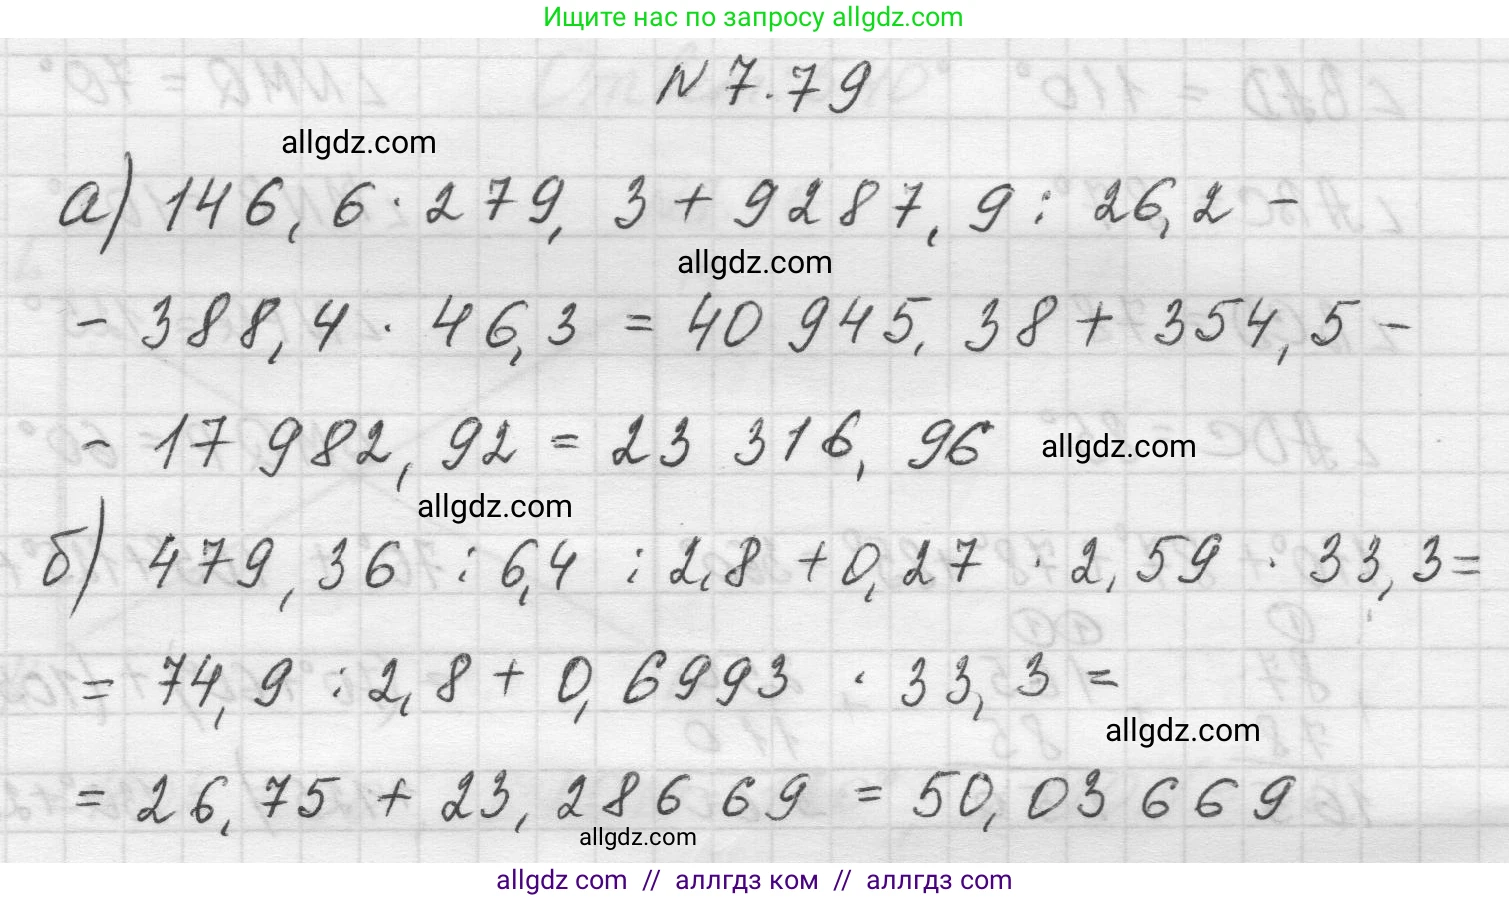 Ищите нас по запросу allgdz.com
N 7.79
allgdz.com
а) 146,6 · 279,3 + 9287,9 : 26,2 -
allgdz.com
- 388,4 · 46,3 = 40 945,38 + 354,5 -
- 17 982,92 = 23 316,96
allgdz.com
allgdz.com
б) 479,36 : 6,4 : 2,8 + 0,27 · 2,59 · 33,3 =
= 74,9 : 2,8 + 0,6993 · 33,3 =
allgdz.com
= 26,75 + 23,28669 = 50,03669
allgdz.com
allgdz com // аллгдз ком // аллгдз com